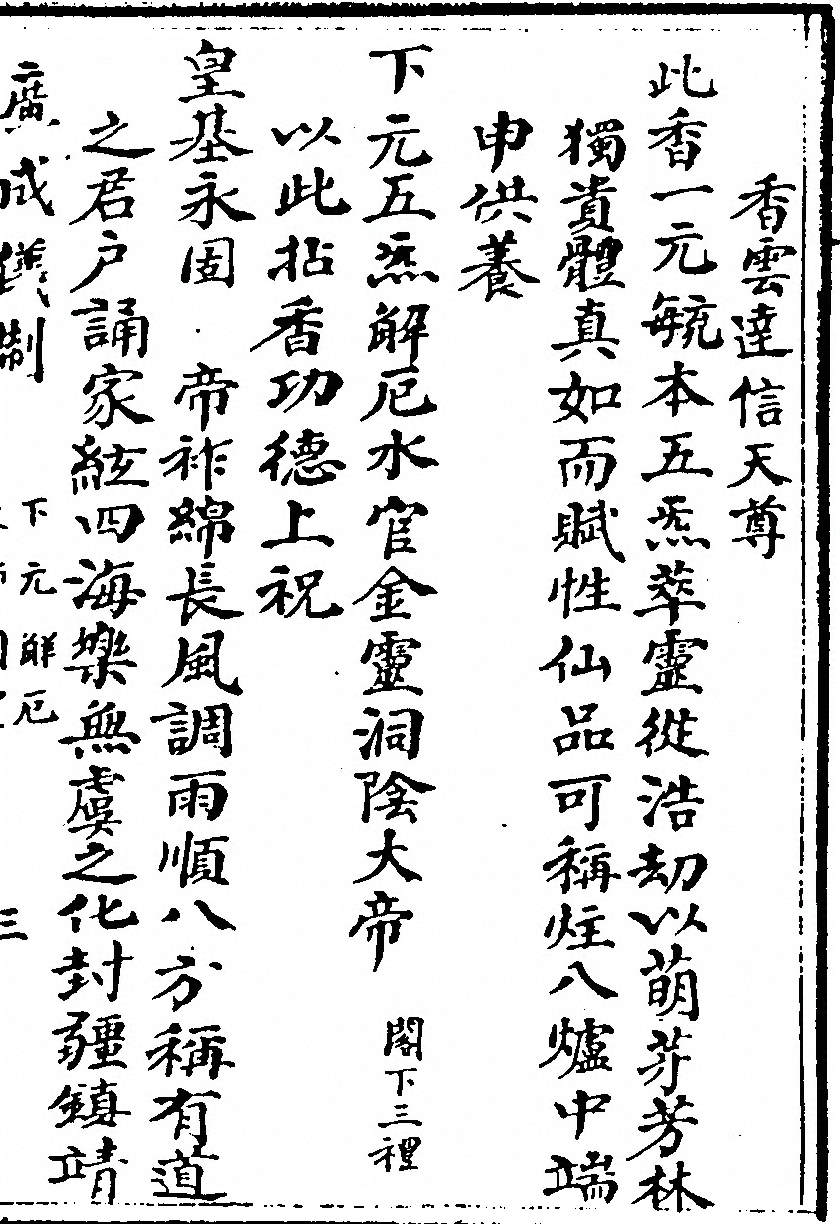 香雲達信天尊
此香一元毓本五炁萃靈從浩劫以萌芽芳林
獨貴體真如而賦性仙品可稱炷八爐中端
申供養
下元五炁解厄水官金靈洞陰大帝 閣下三禮
以此拈香功德上祝
皇基永固 帝祚綿長風調雨順八方稱有道
之君戶誦家絃四海樂無虞之化封疆鎮靖
廣成儀制 下元解厄 三